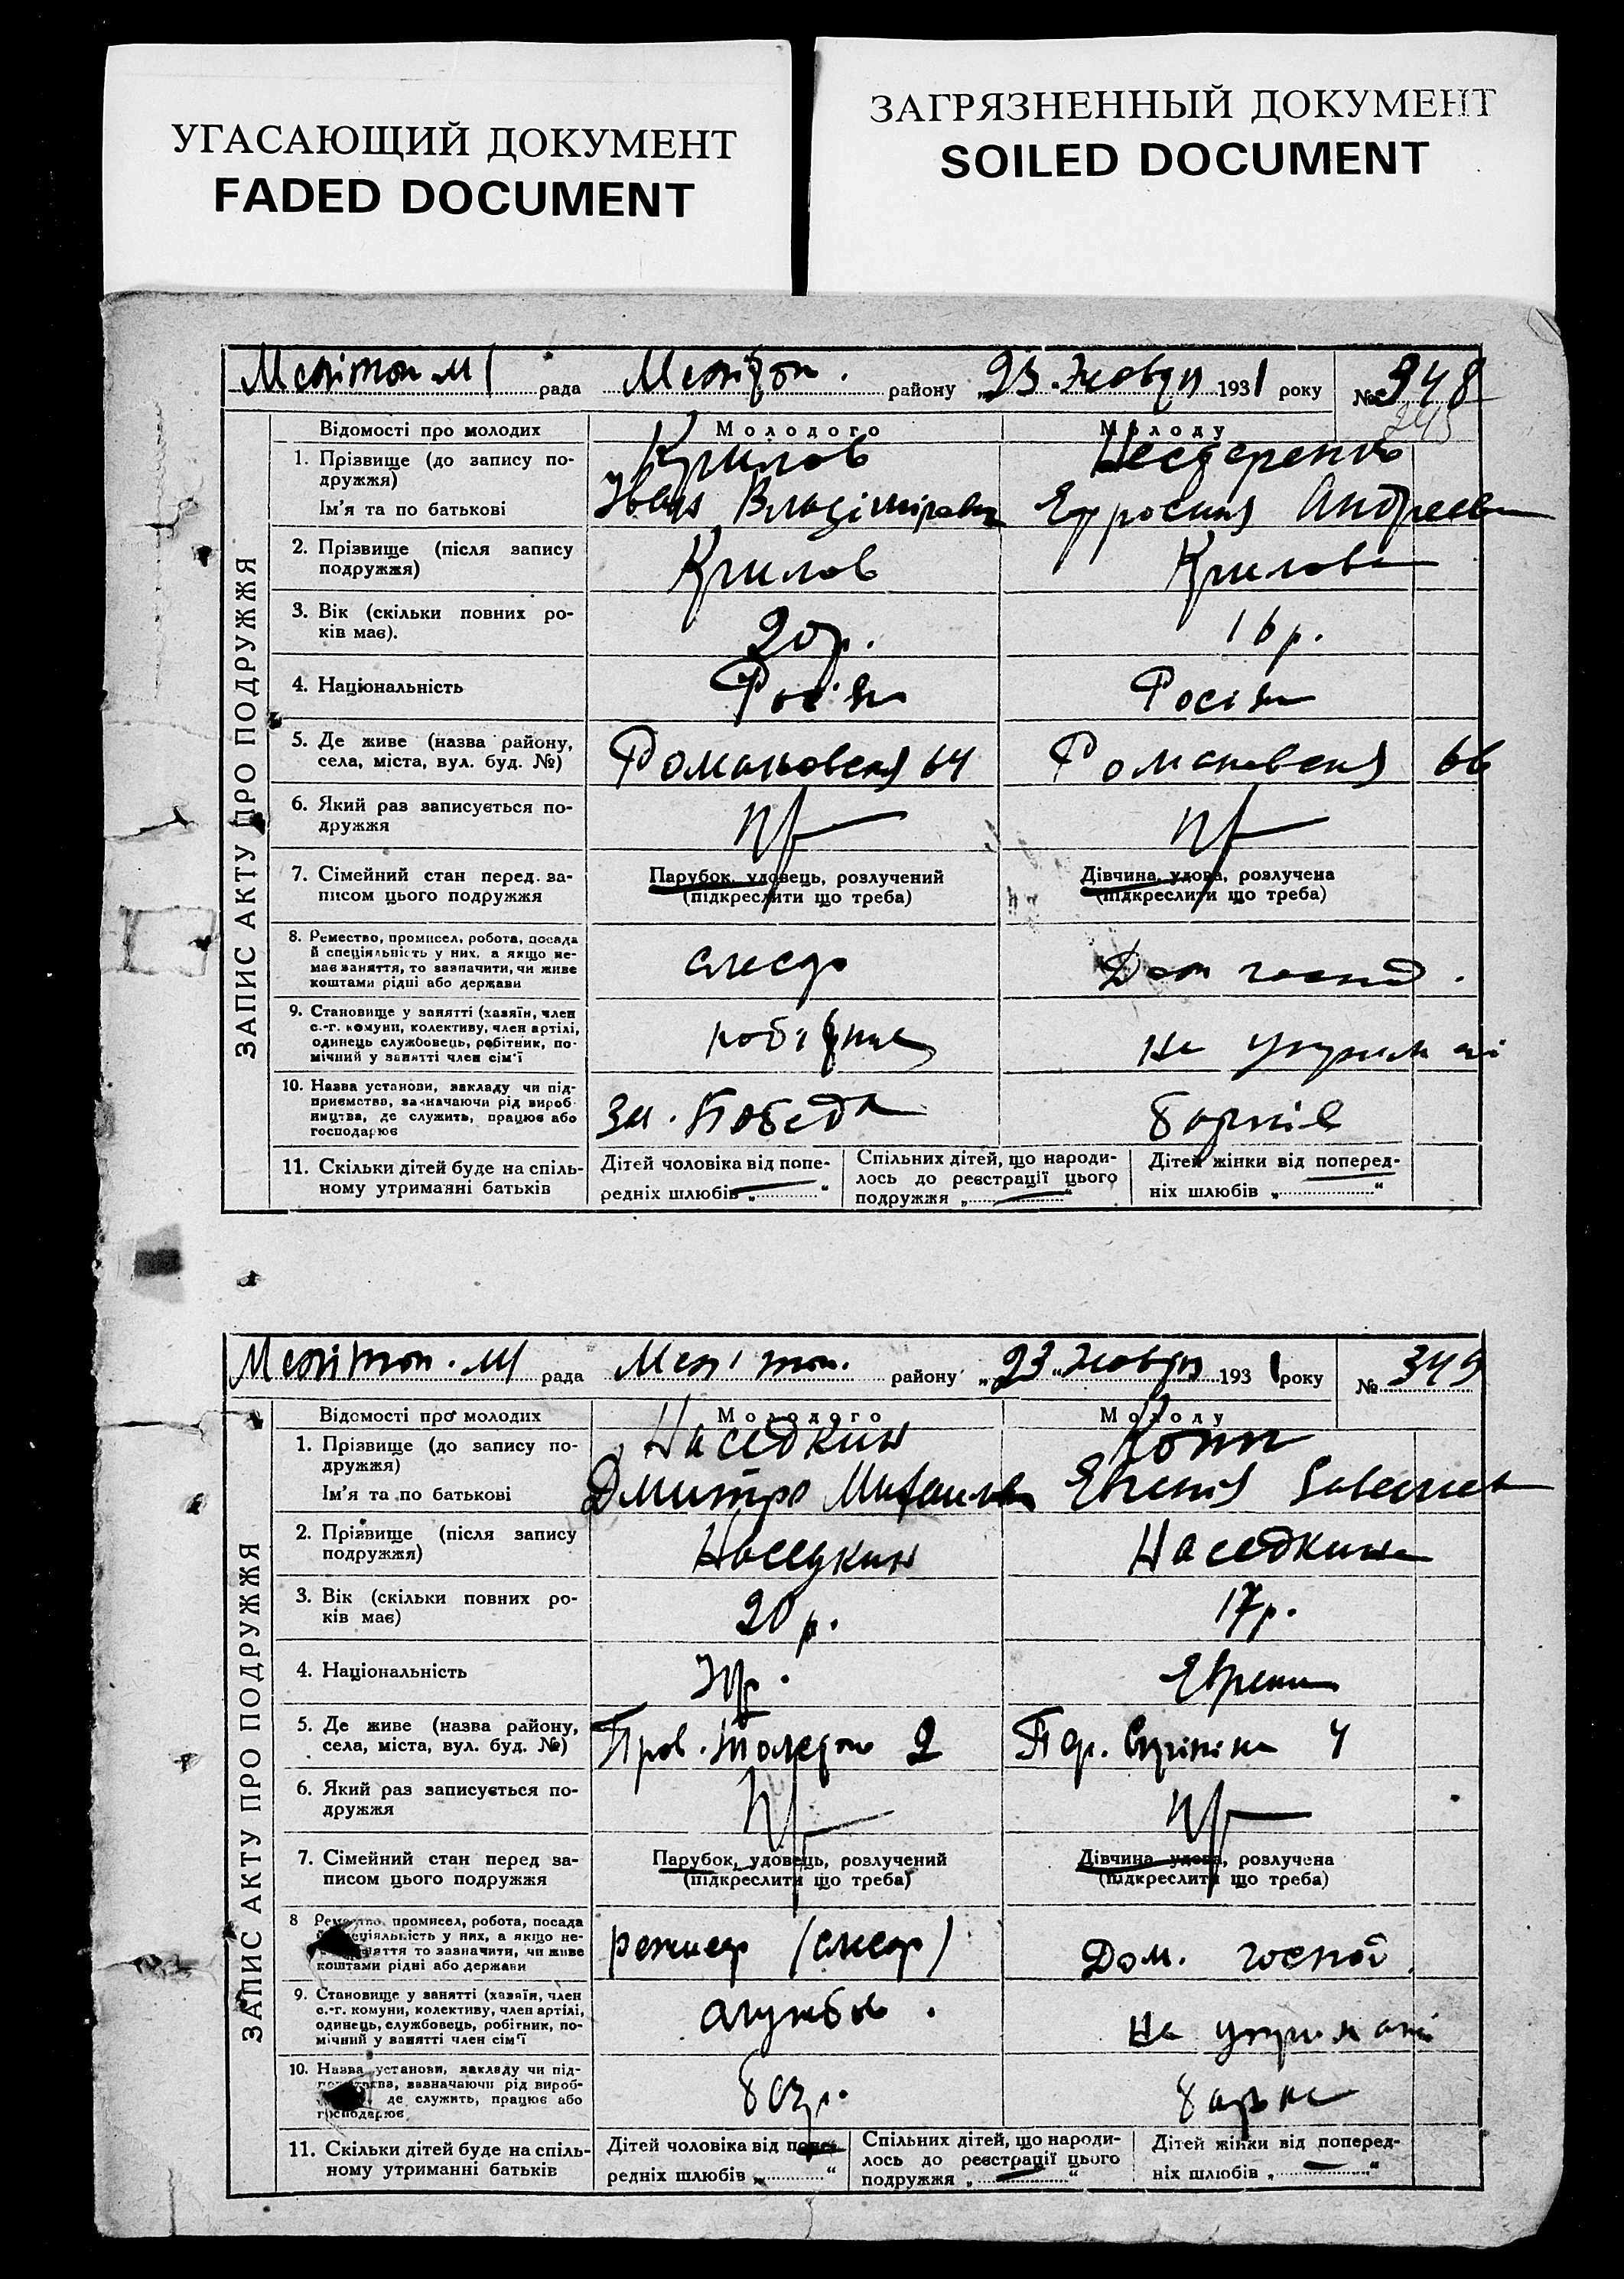 УГАСАЮЩИЙ ДОКУМЕНТ
FADED DOCUMENT
ЗАГРЯЗНЕННЫЙ ДОКУМЕНТ
SOILED DOCUMENT
ЗАПИС АКТУ ПРО ПОДРУЖЖЯ
Мелітоп М рада Мелітоп. району „23 Жовтня 1931 року № 348
245
Відомості про молодих Молодого Молоду
1. Прізвище (до запису по-
дружжя)
Крилов Нестеренко
Ім'я та по батькові Іван Владімірович Ефросиня Андреевна
2. Прізвище (після запису
подружжя)
Крилов Крилова
3. Вік (скільки повних ро-
ків має).
20 р. 16 р.
4. Національність Росіян Росіян
5. Де живе (назва району,
села, міста, вул. буд. №)
Романовская 64 Романовская 66
6. Який раз записується по-
дружжя
7. Сімейний стан перед за-
писом цього подружжя
Парубок, удовець, розлучений
(підкреслити що треба)
Дівчина, удова, розлучена
(підкреслити що треба)
8. Ремество, промисел, робота, посада
й спеціяльність у них, а якщо не-
має заняття, то зазначити, чи живе
коштами рідні або держави
слесар Дом господ.
9. Становище у занятті (хазяїн, член
с.-г. комуни, колективу, член артілі,
одинець службовець, робітник, по-
мічний у занятті член сім'ї
робітник на утриман і
10. Назва установи, закладу чи під-
приємства, зазначаючи рід вироб-
ництва, де служить, працює або
господарює
Зи. Победа батьків
11. Скільки дітей буде на спіль-
ному утриманні батьків
Дітей чоловіка від попе-
редніх шлюбів „ “
Спільних дітей, що народи-
лось до реєстрації цього
подружжя „ “
Дітей жінки від поперед-
ніх шлюбів „ “
ЗАПИС АКТУ ПРО ПОДРУЖЖЯ
Мелітоп. М рада Мелітоп. району „23 „Жовтня 1931 року № 349
Відомості про молодих Молодого Молоду
1. Прізвище (до запису по-
дружжя)
Наседкин
Ім'я та по батькові Дмитро Михайлов Евгенія
2. Прізвище (після запису
подружжя)
Наседкин Наседкина
3. Вік (скільки повних ро-
ків має)
20 р. 17 р.
4. Національність Укр. Евреик
5. Де живе (назва району,
села, міста, вул. буд. №)
Пров. 2 Пер. 4
6. Який раз записується по-
дружжя
7. Сімейний стан перед за-
писом цього подружжя
Парубок, удовець, розлучений
(підкреслити що треба)
Дівчина, удова, розлучена
(підкреслити що треба)
8 Ремество, промисел, робота, посада
й спеціяльність у них, а якщо не-
має заняття то зазначити, чи живе
коштами рідні або держави
режисер (слесар) Дом. господ.
9. Становище у занятті (хазяїн, член
с.-г. комуни, колективу, член артілі,
одинець, службовець, робітник, по-
мічний у занятті член сім'ї
службов. на утримані
10. Назва установи, закладу чи під-
приємства, зазначаючи рід вироб-
ництва, де служить, працює або
господарює
безр. батька
11. Скільки дітей буде на спіль-
ному утриманні батьків
Дітей чоловіка від попе-
редніх шлюбів „ “
Спільних дітей, що народи-
лось до реєстрації цього
подружжя „ “
Дітей жінки від поперед-
ніх шлюбів „ “